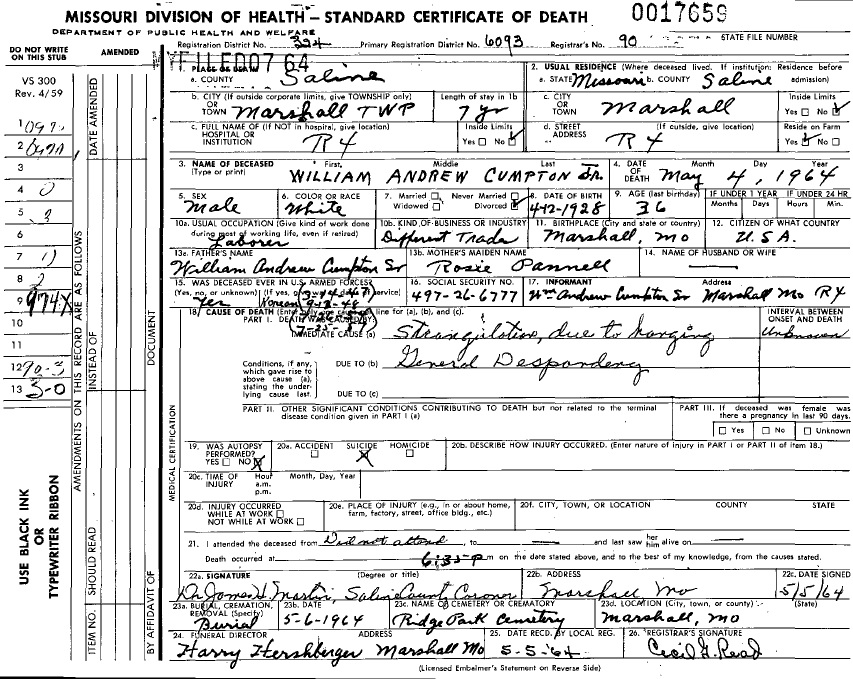 MISSOURI DIVISION OF HEALTH — STANDARD CERTIFICATE OF DEATH 0017659
DEPARTMENT OF PUBLIC HEALTH AND WELFARE STATE FILE NUMBER
Registration District No. 324 Primary Registration District No. 6093 Registrar's No. 90
DO NOT WRITE ON THIS STUB
AMENDED
VS 300
Rev. 4/59
DATE AMENDED
1
2
3
4 0
5 3
6
7 1
8 2
9 974X
10
11
12 90-3
13 3-0
AMENDMENTS ON THIS RECORD ARE AS FOLLOWS
INSTEAD OF
DOCUMENT
SHOULD READ
ITEM NO.
BY AFFIDAVIT OF
USE BLACK INK
OR
TYPEWRITER RIBBON
MEDICAL CERTIFICATION
1. PLACE OF DEATH
a. COUNTY Saline
2. USUAL RESIDENCE (Where deceased lived. If institution: Residence before admission)
a. STATE Missouri b. COUNTY Saline
b. CITY (If outside corporate limits, give TOWNSHIP only) OR TOWN Marshall TWP
Length of stay in 1b 7 yr
c. CITY OR TOWN Marshall
Inside Limits Yes No
c. FULL NAME OF (If NOT in hospital, give location) HOSPITAL OR INSTITUTION R 4
Inside Limits Yes No
d. STREET ADDRESS (If outside, give location) R 4
Reside on Farm Yes No
3. NAME OF DECEASED (Type or print) First, Middle Last
WILLIAM ANDREW CUMPTON JR.
4. DATE OF DEATH Month Day Year
May 4, 1964
5. SEX Male
6. COLOR OR RACE White
7. Married Never Married Widowed Divorced
8. DATE OF BIRTH 4-12-1928
9. AGE (last birthday) 36
IF UNDER 1 YEAR Months Days
IF UNDER 24 HR Hours Min.
10a. USUAL OCCUPATION (Give kind of work done during most of working life, even if retired) Laborer
10b. KIND OF BUSINESS OR INDUSTRY Different Trades
11. BIRTHPLACE (City and state or country) Marshall, Mo
12. CITIZEN OF WHAT COUNTRY U.S.A.
13a. FATHER'S NAME William Andrew Cumpton Sr
13b. MOTHER'S MAIDEN NAME Rosie Pannell
14. NAME OF HUSBAND OR WIFE —
15. WAS DECEASED EVER IN U.S. ARMED FORCES?
(Yes, no, or unknown) (If yes, service)
Yes Korean 9-12-48
16. SOCIAL SECURITY NO. 497-26-6777
17. INFORMANT Address
Wm Andrew Cumpton Sr Marshall Mo R4
18. CAUSE OF DEATH (Enter only one cause per line for (a), (b), and (c).
PART I. DEATH WAS CAUSED BY:
IMMEDIATE CAUSE (a) Strangulation, due to hanging
INTERVAL BETWEEN ONSET AND DEATH Unknown
Conditions, if any, which gave rise to above cause (a), stating the underlying cause last.
DUE TO (b) General Despondency
DUE TO (c)
PART II. OTHER SIGNIFICANT CONDITIONS CONTRIBUTING TO DEATH but not related to the terminal disease condition given in PART I (a)
PART III. If deceased was female was there a pregnancy in last 90 days.
Yes No Unknown
19. WAS AUTOPSY PERFORMED? YES NO X
20a. ACCIDENT SUICIDE X HOMICIDE
20b. DESCRIBE HOW INJURY OCCURRED. (Enter nature of injury in PART I or PART II of item 18.)
20c. TIME OF INJURY Hour a.m. p.m. Month, Day, Year
20d. INJURY OCCURRED WHILE AT WORK NOT WHILE AT WORK
20e. PLACE OF INJURY (e.g., in or about home, farm, factory, street, office bldg., etc.)
20f. CITY, TOWN, OR LOCATION COUNTY STATE
21. I attended the deceased from Did not attend, to — and last saw her him alive on —
Death occurred at 6:35 P m on the date stated above, and to the best of my knowledge, from the causes stated.
22a. SIGNATURE (Degree or title) Dr James H. Martin, Saline County Coroner
22b. ADDRESS Marshall Mo
22c. DATE SIGNED 5/5/64
23a. BURIAL, CREMATION, REMOVAL (Specify) Burial
23b. DATE 5-6-1964
23c. NAME OF CEMETERY OR CREMATORY Ridge Park Cemetery
23d. LOCATION (City, town, or county) (State) Marshall, Mo
24. FUNERAL DIRECTOR ADDRESS Harry Hershberger Marshall Mo
25. DATE RECD. BY LOCAL REG. 5-5-64
26. REGISTRAR'S SIGNATURE Cecil H. Read
(Licensed Embalmer's Statement on Reverse Side)